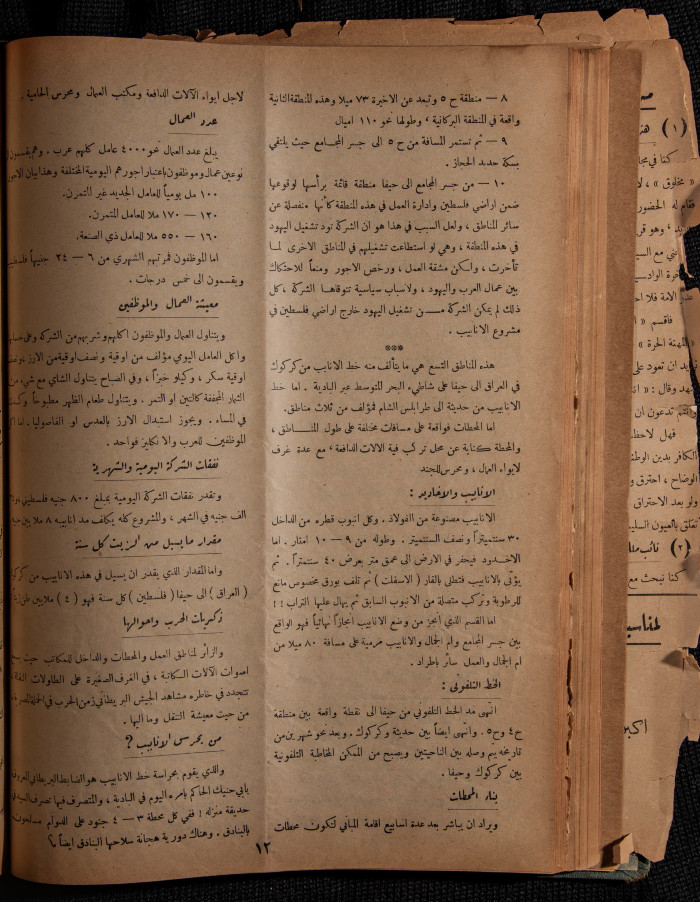 ٨ — منطقة ح ٥ وتبعد عن الاخيرة ٧٣ ميلا وهذه المنطقة الثانية
واقعة في المنطقة البركانية ، وطولها نحو ١١٠ اميال
٩ — ثم تستمر المسافة من ح ٥ الى جسر المجامع حيث يلتقي
بسكة حديد الحجاز .
١٠ — من جسر المجامع الى حيفا منطقة قائمة برأسها لوقوعها
ضمن اراضي فلسطين وادارة العمل في هذه المنطقة كأنها منفصلة عن
سائر المناطق ، ولعل السبب في هذا هو ان الشركة تود تشغيل اليهود
في هذه المنطقة ، وهي لو استطاعت تشغيلهم في المناطق الاخرى لما
تأخرت ، ولكن مشقة العمل ، ورخص الاجور ومنعاً للاحتكاك
بين عمال العرب واليهود ، ولاسباب سياسية تتوقاها الشركة ، كل
ذلك لم يمكن الشركة مـــن تشغيل اليهود خارج اراضي فلسطين في
مشروع الانابيب .
***
هذه المناطق التسع هي ما يتألف منه خط الانابيب من كركوك
في العراق الى حيفا على شاطىء البحر المتوسط عبر البادية . اما خط
الانابيب من حديثة الى طرابلس الشام فمؤلف من ثلاث مناطق .
اما المحطات فواقعة على مسافات مختلفة على طول المنـــاطق ،
والمحطة كناية عن محل تركب فيه الالات الدافعة ، مع عدة غرف
لايواء العمال ، ومحرس للجند
الانابيب والاخاديد :
الانابيب مصنوعة من الفولاذ . وكل انبوب قطره من الداخل
٣٠ سنتميتراً ونصف السنتميتر . وطوله من ٩ — ١٠ امتار . اما
الاخدود فيحفر في الارض الى عمق متر بعرض ٤٠ سنتمتراً . ثم
يؤتى بالانابيب فتطلى بالقار ( الاسفلت ) ثم تلف بورق مخصوص مانع
للرطوبة وتركب متصلة من الانبوب السابق ثم يهال عليها التراب ! !
اما القسم الذي انجز من وضع الانابيب انجازاً نهائياً فهو الواقع
بين جسر المجامع وام الجمال والانابيب مرمية على مسافة ٨٠ ميلا من
ام الجمال والعمل سائر باطراد .
الخط التلفوني :
انتهى مد الخط التلفوني من حيفا الى نقطة واقعة بين منطقة
ح٤ وح٥ . وانتهى ايضاً بين حديثة وكركوك . وبعد نحو شهرين من
تاريخه يتم وصله بين الناحيتين ويصبح من الممكن المخاطبة التلفونية
بين كركوك وحيفا .
بناء المحطات
ويراد ان يباشر بعد عدة اسابيع اقامة المباني لتكون محطات
لاجل ايواء الآلات الدافعة ومكتب العمال ومحرس الحامية .
عدد العمال
يبلغ عدد العمال نحو ٤٠٠٠ عامل كلهم عرب . وهم يقسمون
نوعين عمال وموظفون باعتبار اجورهم اليومية المختلفة وهذا بيان الاجور
١٠٠ مل يومياً للعامل الجديد غير المتمرن .
١٢٠ — ١٧٠ ملا للعامل المتمرن .
١٦٠ — ٥٥٠ ملا للعامل ذي الصنعة .
اما الموظفون فمرتبهم الشهري من ٦ — ٢٤ جنيهاً
ويقسمون الى خمس درجات .
معيشة العمال والموظفين
ويتناول العمال والموظفون اكلهم وشربهم من الشركة وعلى
واكل العامل اليومي مؤلف من اوقية ونصف اوقية من الارز
اوقية سكر ، وكيلو خبزاً ، وفي الصباح يتناول الشاي مع شيء من
الثمار المجففة كالتين او التمر . ويتناول طعام الظهر مطبوخاً
في المساء . ويجوز استبدال الارز بالعدس او الفاصوليا . اما
الموظفين للعرب والانكليز فواحد .
نفقات الشركة اليومية والشهرية
وتقدر نفقات الشركة اليومية بمبلغ ٨٠٠ جنيه فلسطيني
الف جنيه في الشهر ، والمشروع كله يكلف مد انابيبه ٨ ملايين
مقدار ما يسيل من الزيت كل سنة
واما المقدار الذي يقدر ان يسيل في هذه الانابيب من
( العراق ) الى حيفا ( فلسطين ) كل سنة فهو ( ٤ ) ملايين
ذكريات الحرب واهوالها
والزائر لمناطق العمل والمحطات والداخل للمكاتب حيث
اصوات الآلات الكاتبة ، في الغرف الصغيرة على الطاولات
تتجدد في خاطره مشاهد الجيش البريطاني زمن الحرب في
من حيث معيشة التنقل وما اليها .
من يحرس الانابيب ؟
والذي يقوم بحراسة خط الانابيب هو الضابط البريطاني
بابي حنيك الحاكم بامره اليوم في البادية ، والمتصرف فيها تصرف
حديقة منزله ! ففي كل محطة ٣ — ٤ جنود على الدوام مسلحون
بالبنادق . وهناك دورية هجانة سلاحها البنادق ايضاً
١٢
( ١ )
« مخلوق »
( ٢ )
كنا نبحث مع